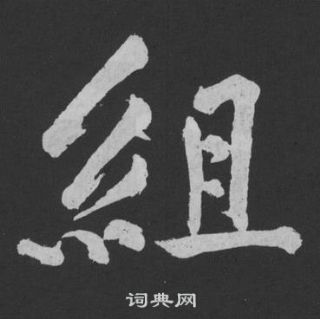 組
词典网